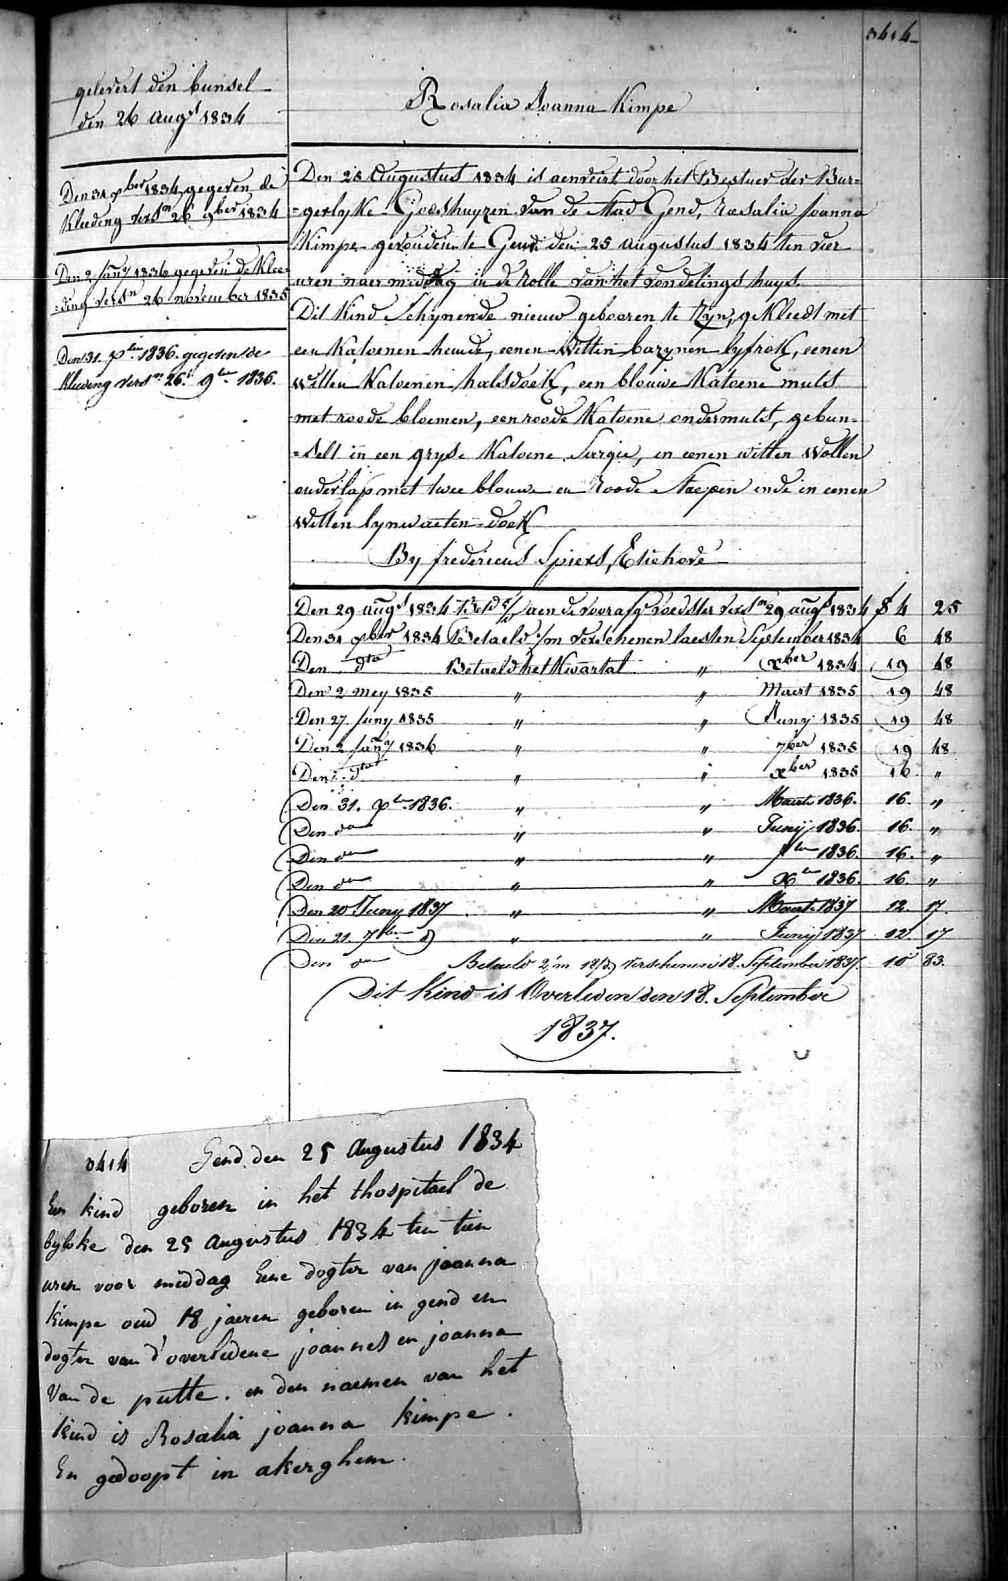 3414
gelevert den bunsel
den 26 Augst 1834
Den 31 xber 1834 gegeven de
kleeding verso 26 9ber 1834
Den 2 Jany 1836 gegeven de klee-
=ding versn 26 november 1835
Den 31. xber 1836. gegeven de
kleeding versn 26. 9ber 1836.
Rosalia Joanna Kimpe
Den 25 Augustus 1834 is aenveirt door het Bestuer der Bur=
=gerlyke Godshuyzen van de Stad Gend, Rosalia Joanna
Kimpe gevonden te Gend den 25 augustus 1834 ten vier
uren naer middag in de Rolle van het vondelings huys.
Dit Kind Schynende nieuw gebooren te Zyn, gekleedt met
een Katoenen hemde, eenen Witten bazynen lyfrok, eenen
Witten Katoenen halsdoek, een blouwe Katoene muts
met roode bloemen, een roode Katoene ondermuts, gebun=
=selt in een gryse Katoene Sargie, en eenen witten Wollen
onderlap met twee blouwe en Roode Staepen ende in eenen
Witten lynwaeten doek
By fredericus Spiers, Etichove
Den 29 augst 1834 aen de voorafg Voedster versn 29 augst 1834 f 4 25
Den 31 xber 1834 Betaeld 1/m verschenen laesten September 1834 6 48
Den dto Betaeld het Kwartal " xber 1834 19 48
Den 2 mey 1835 " " Maert 1835 19 48
Den 27 Juny 1835 " " Juny 1835 19 48
Den 2 Jany 1836 " " 7ber 1835 19 48
Den dto " " xber 1835 16 "
Den 31. xber 1836. " " Maert 1836. 16. "
Den do " " Junij 1836. 16. "
Den do " " 7ber 1836. 16. "
Den do " " Xber 1836. 16 "
Den 20 Juny 1837 " " Maert 1837 12. 17.
Den 21. 7ber " " Junij 1837 12 17
Den do Betaeld 2/m 18/d verschenen 18. September 1837. 10 83.
Dit Kind is Overleden den 18. September
1837.
3414 Gend den 25 Augustus 1834
Een kind geboren in het thospitael de
byloke den 25 Augustus 1834 ten tien
uren voor middag Eene dogter van joanna
kimpe oud 18 jaeren geboren in gend en
dogter van d'overledene joannes en joanna
Van de putte. en den naemen van het
kind is Rosalia joanna kimpe.
En gedoopt in akerghem.